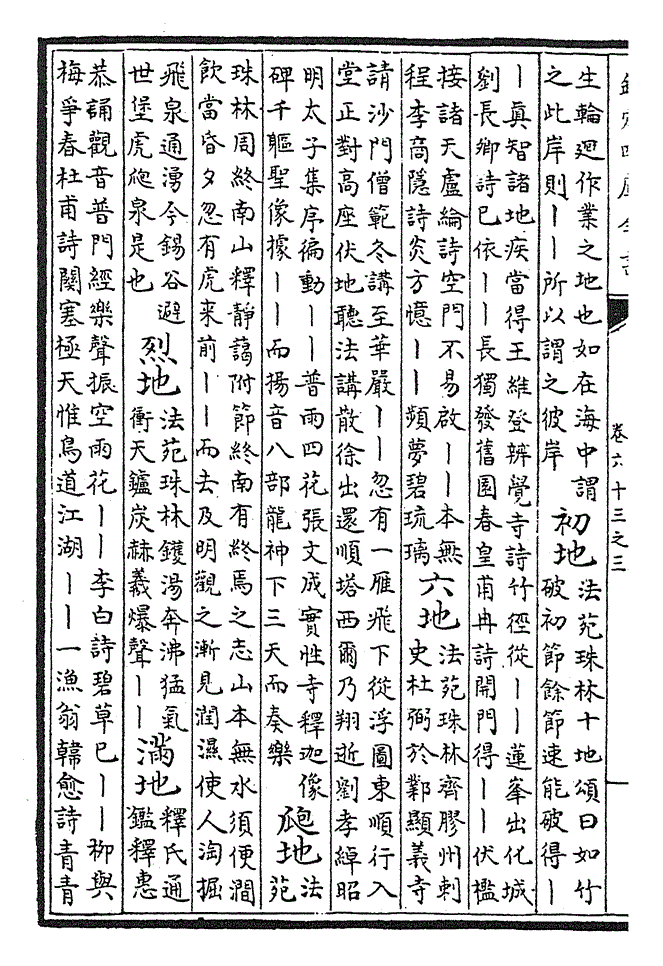 卷六十三之三
生輪迴作業之地也如在海中謂
之此岸則丨丨所以謂之彼岸
初地
法苑珠林十地頌曰如竹
破初節餘節速能破得丨
丨眞智諸地疾當得王維登辨覺寺詩竹徑從丨丨蓮峯出化城
劉長卿詩已依丨丨長獨發舊園春皇甫冉詩開門得丨丨伏檻
接諸天盧綸詩空門不易啟丨丨本無
程李商隱詩炎方憶丨丨頻夢碧琉璃
六地
法苑珠林齊膠州刺
史杜弼於鄴顯義寺
請沙門僧範冬講至華嚴丨丨忽有一雁飛下從浮圖東順行入
堂正對高座伏地聽法講散徐出還順塔西爾乃翔逝劉孝綽昭
明太子集序徧動丨丨普雨四花張文成實性寺釋迦像
碑千軀聖像據丨丨而揚音八部龍神下三天而奏樂
爮地
法
苑
珠林周終南山釋靜藹附節終南有終焉之志山本無水須便澗
飲當昏夕忽有虎來前丨丨而去及明觀之漸見潤濕使人淘掘
飛泉通湧今錫谷避
世堡虎爮泉是也
烈地
法苑珠林鑊湯奔沸猛氣
衝天鑪炭赫羲爆聲丨丨
滿地
釋氏通
鑑釋惠
恭誦觀音普門經樂聲振空雨花丨丨李白詩碧草已丨丨栁與
梅爭春杜甫詩關塞極天惟鳥道江湖丨丨一漁翁韓愈詩青青